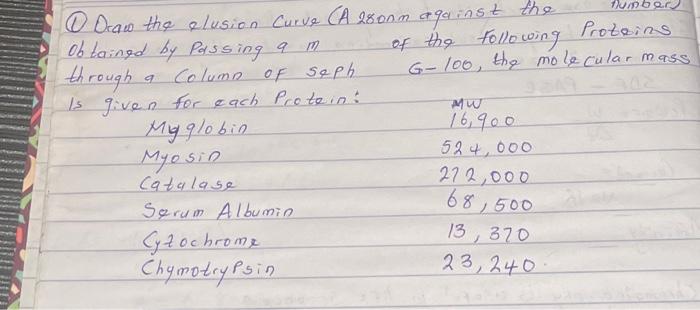 ① Draw the elusion Curve (A 280nm against the number)
Obtained by Passing a m of the following Proteins
through a Column OF Seph G-100, the molecular mass
Is given for each Protein:
MW
Myglobin 16,900
Myosin 524,000
Catalase 272,000
Serum Albumin 68,500
Cytochrome 13,370
Chymotrypsin 23,240.